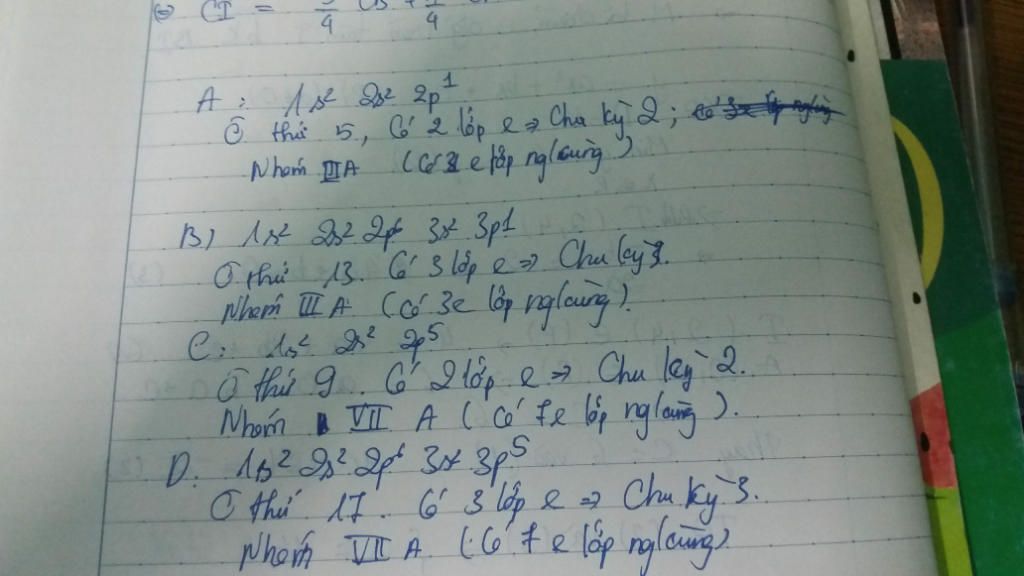 CI =
A : 1s² 2s² 2p¹
Ô thứ 5, Có 2 lớp e => Chu kỳ 2 ;
Nhóm IIIA (Có 3 e lớp ng/cùng)
B) 1s² 2s² 2p⁶ 3s² 3p1
Ô thứ 13. Có 3 lớp e => Chu kỳ 3.
Nhóm III A (có 3e lớp ng/cùng).
C: 1s² 2s² 2p⁵
Ô thứ 9. Có 2 lớp e => Chu kỳ 2.
Nhóm VII A (có 7e lớp ng/cùng).
D. 1s² 2s² 2p⁶ 3s² 3p⁵
Ô thứ 17. Có 3 lớp e => Chu kỳ 3.
Nhóm VII A (Có 7 e lớp ng/cùng)